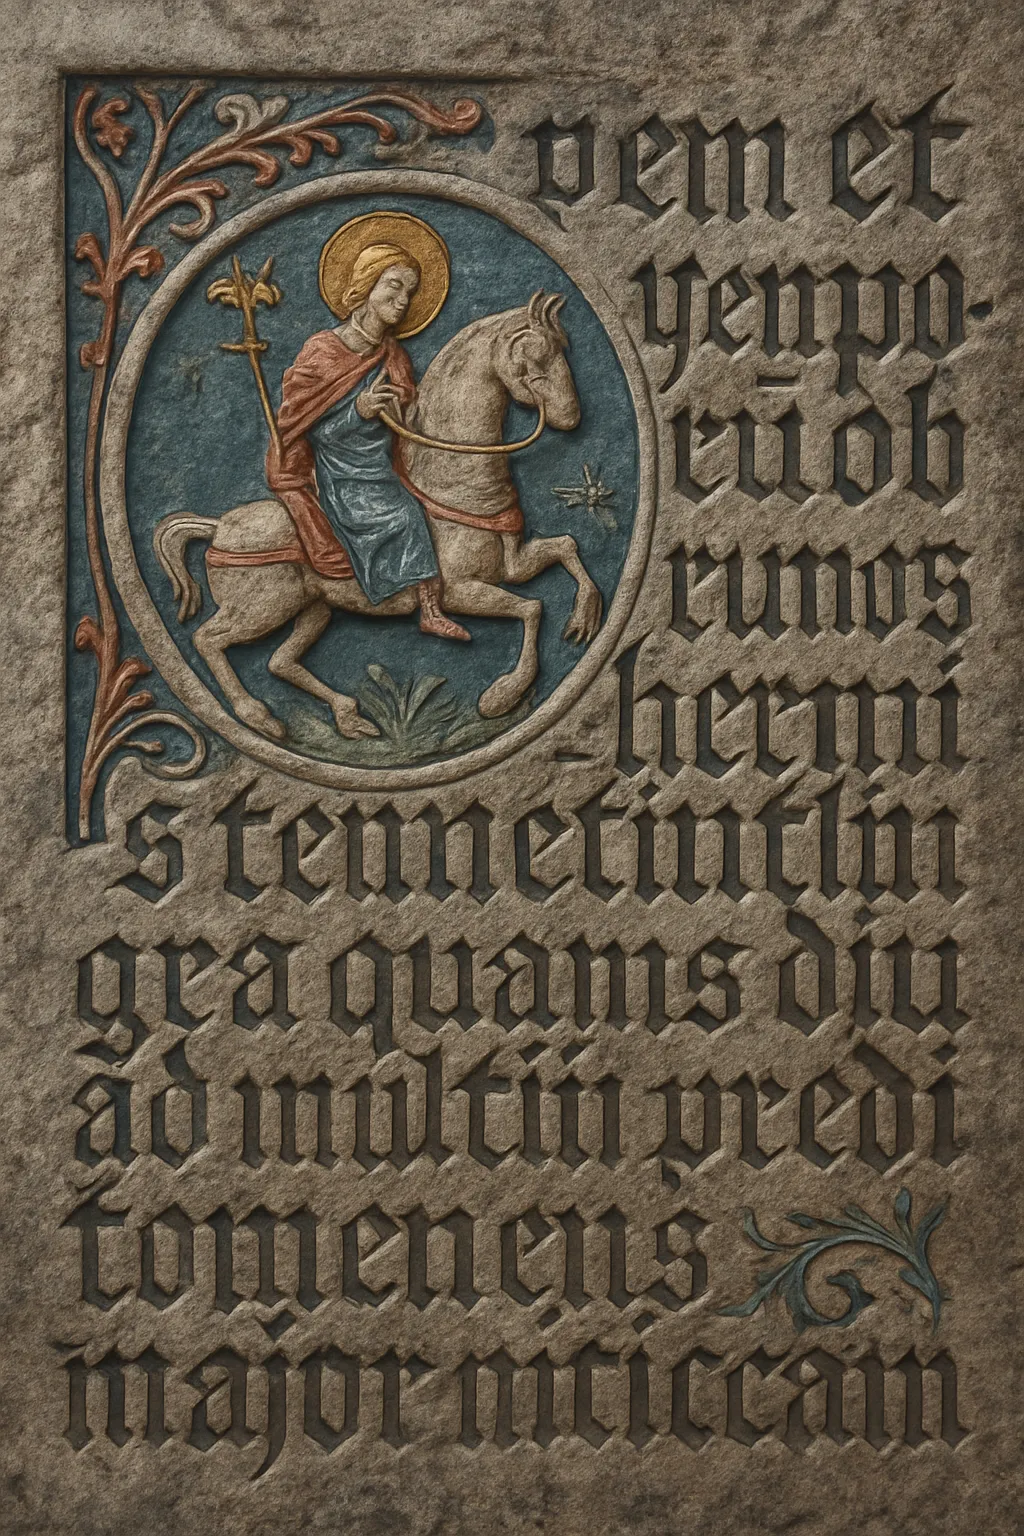 pem et
yempo-
rūı db
rumos
hermi
s temnetintlini
gra quams diu
ad multiii predi
tomenens
major niticcam